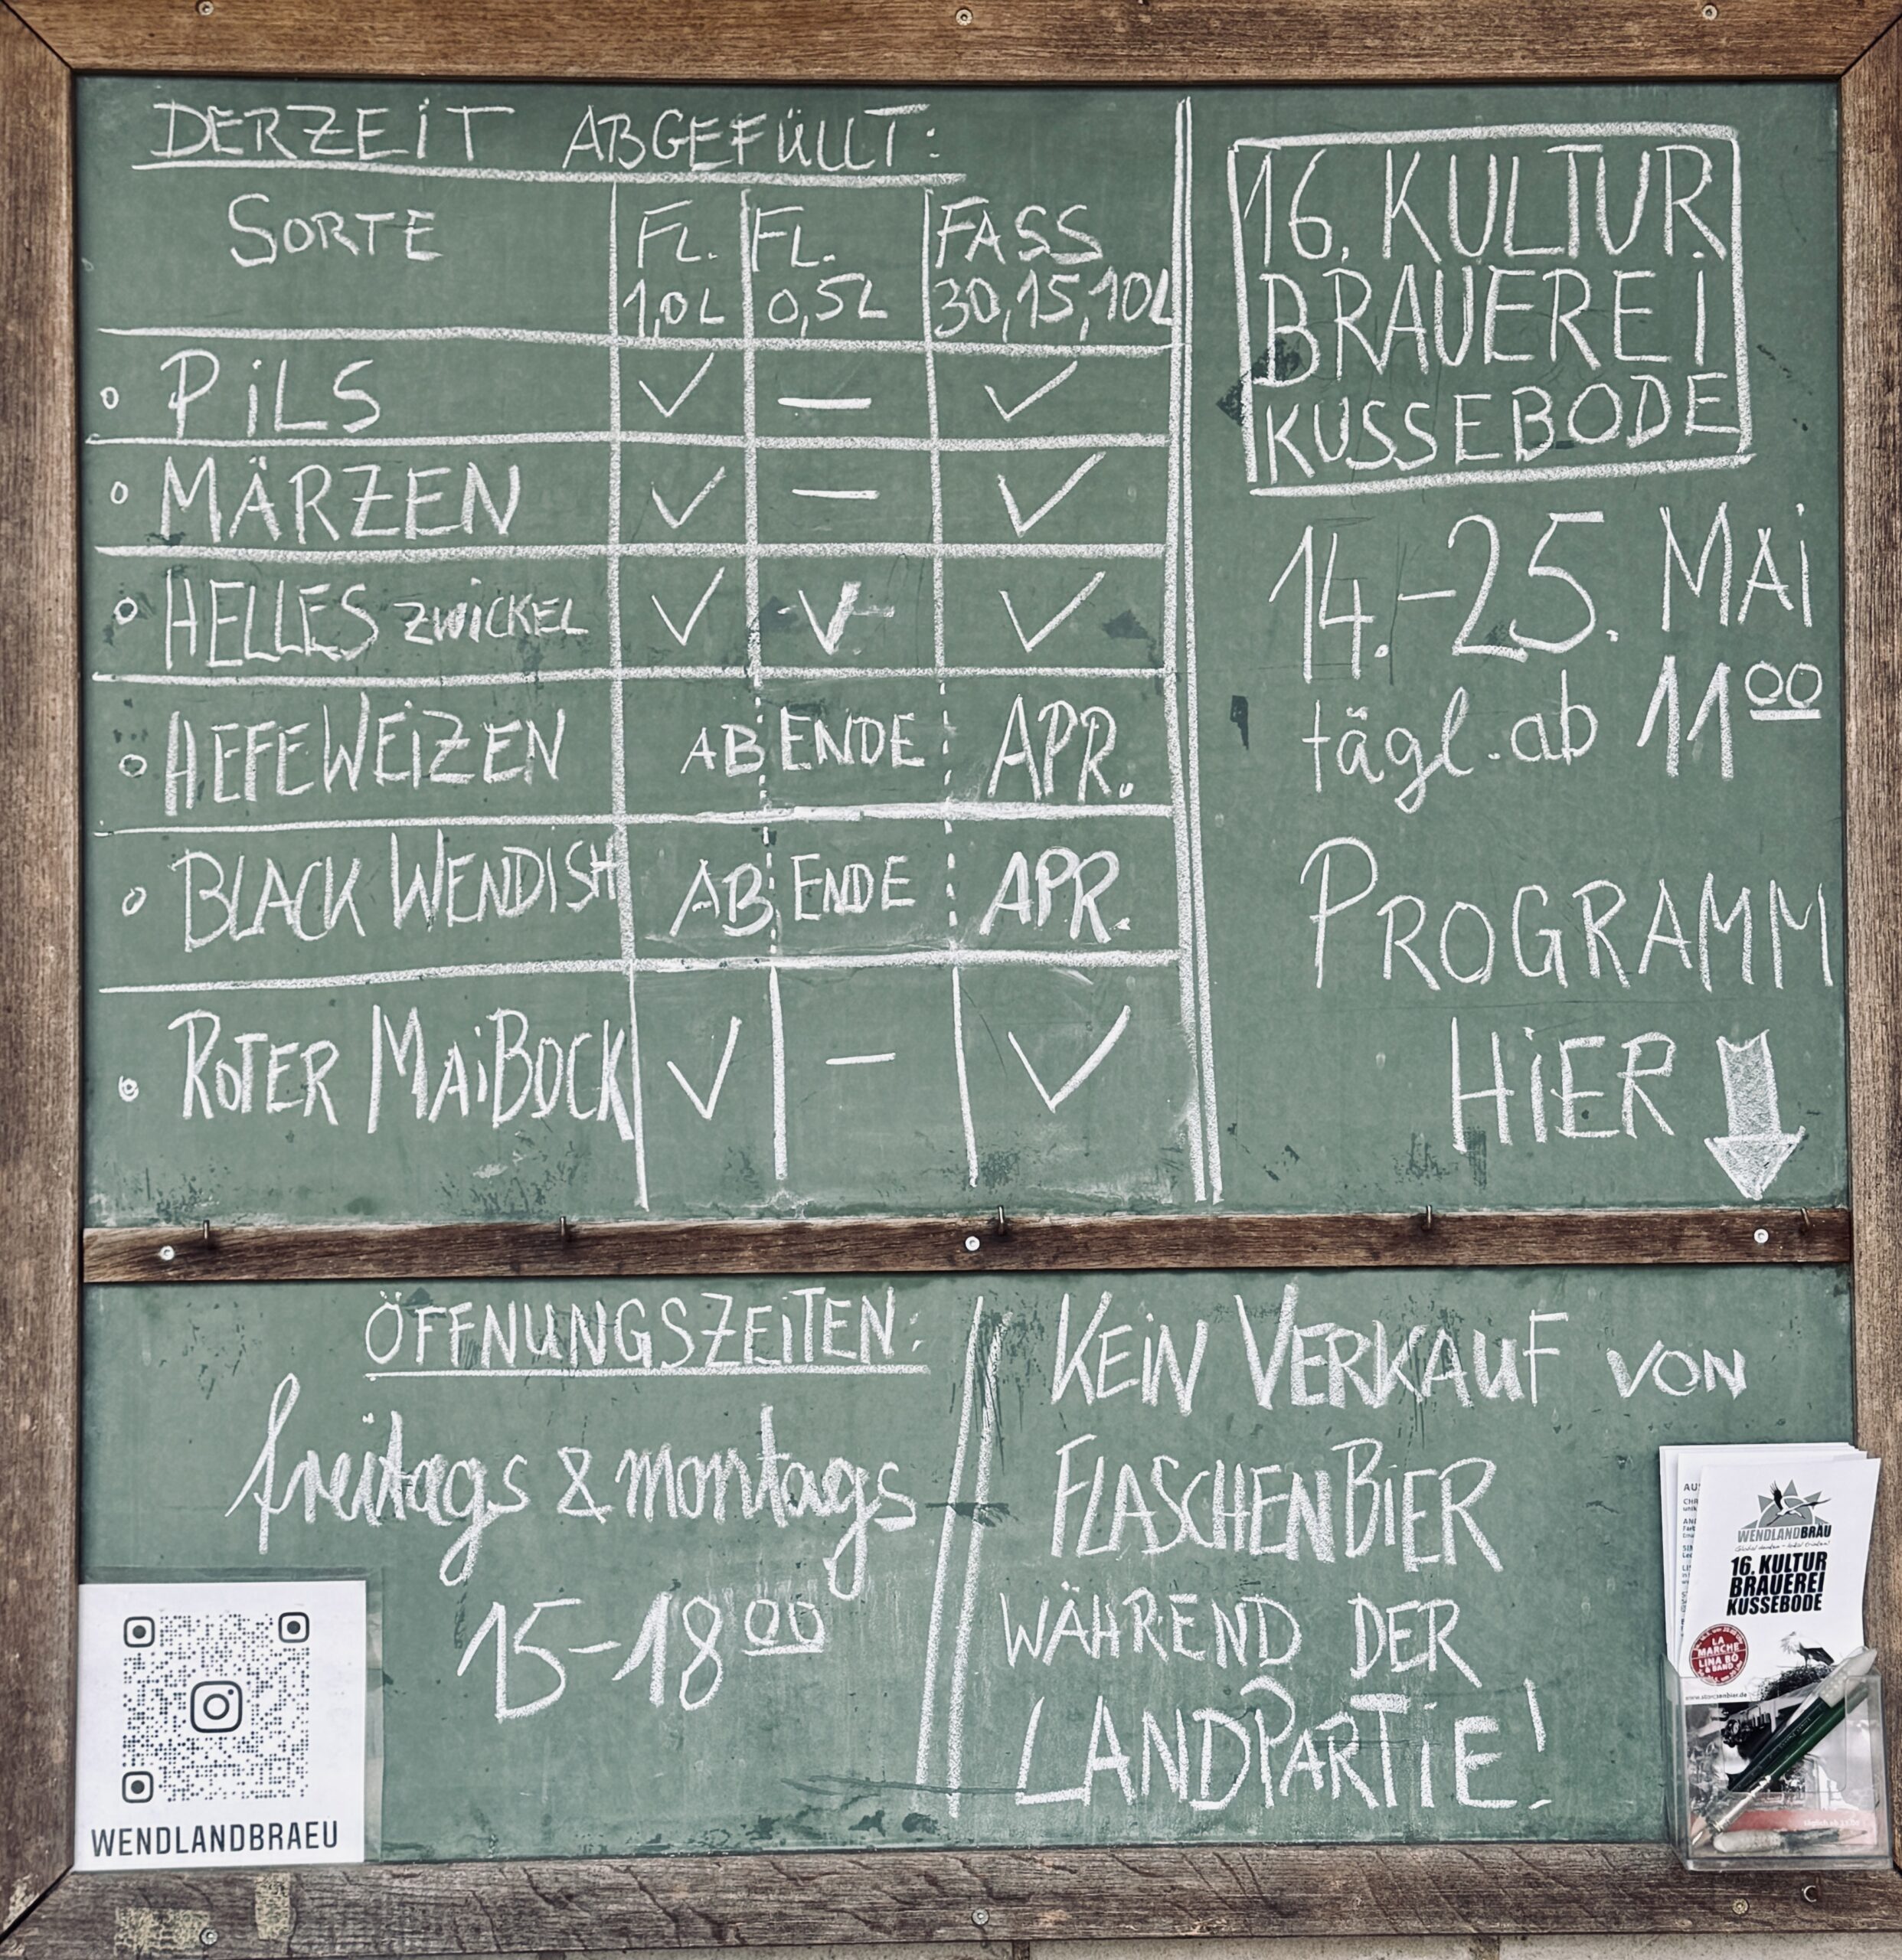 DERZEIT ABGEFÜLLT:
SORTE FL. 1,0L FL. 0,5L FASS 30,15,10L
PILS ✓ — ✓
MÄRZEN ✓ — ✓
HELLES ZWICKEL ✓ ✓ ✓
HEFEWEIZEN AB ENDE APR.
BLACK WENDISH AB ENDE APR.
ROTER MAIBOCK ✓ — ✓
16. KULTUR
BRAUEREI
KUSSEBODE
14.-25. MAI
tägl. ab 11 00
PROGRAMM
HIER
ÖFFNUNGSZEITEN:
freitags & montags
15-18 00
KEIN VERKAUF VON
FLASCHENBIER
WÄHREND DER
LANDPARTIE!
WENDLANDBRAEU
WENDLANDBRÄU
16. KULTUR
BRAUEREI
KUSSEBODE
LA
MARCHE
LINA BÓ
& BAND
www.storchenbier.de